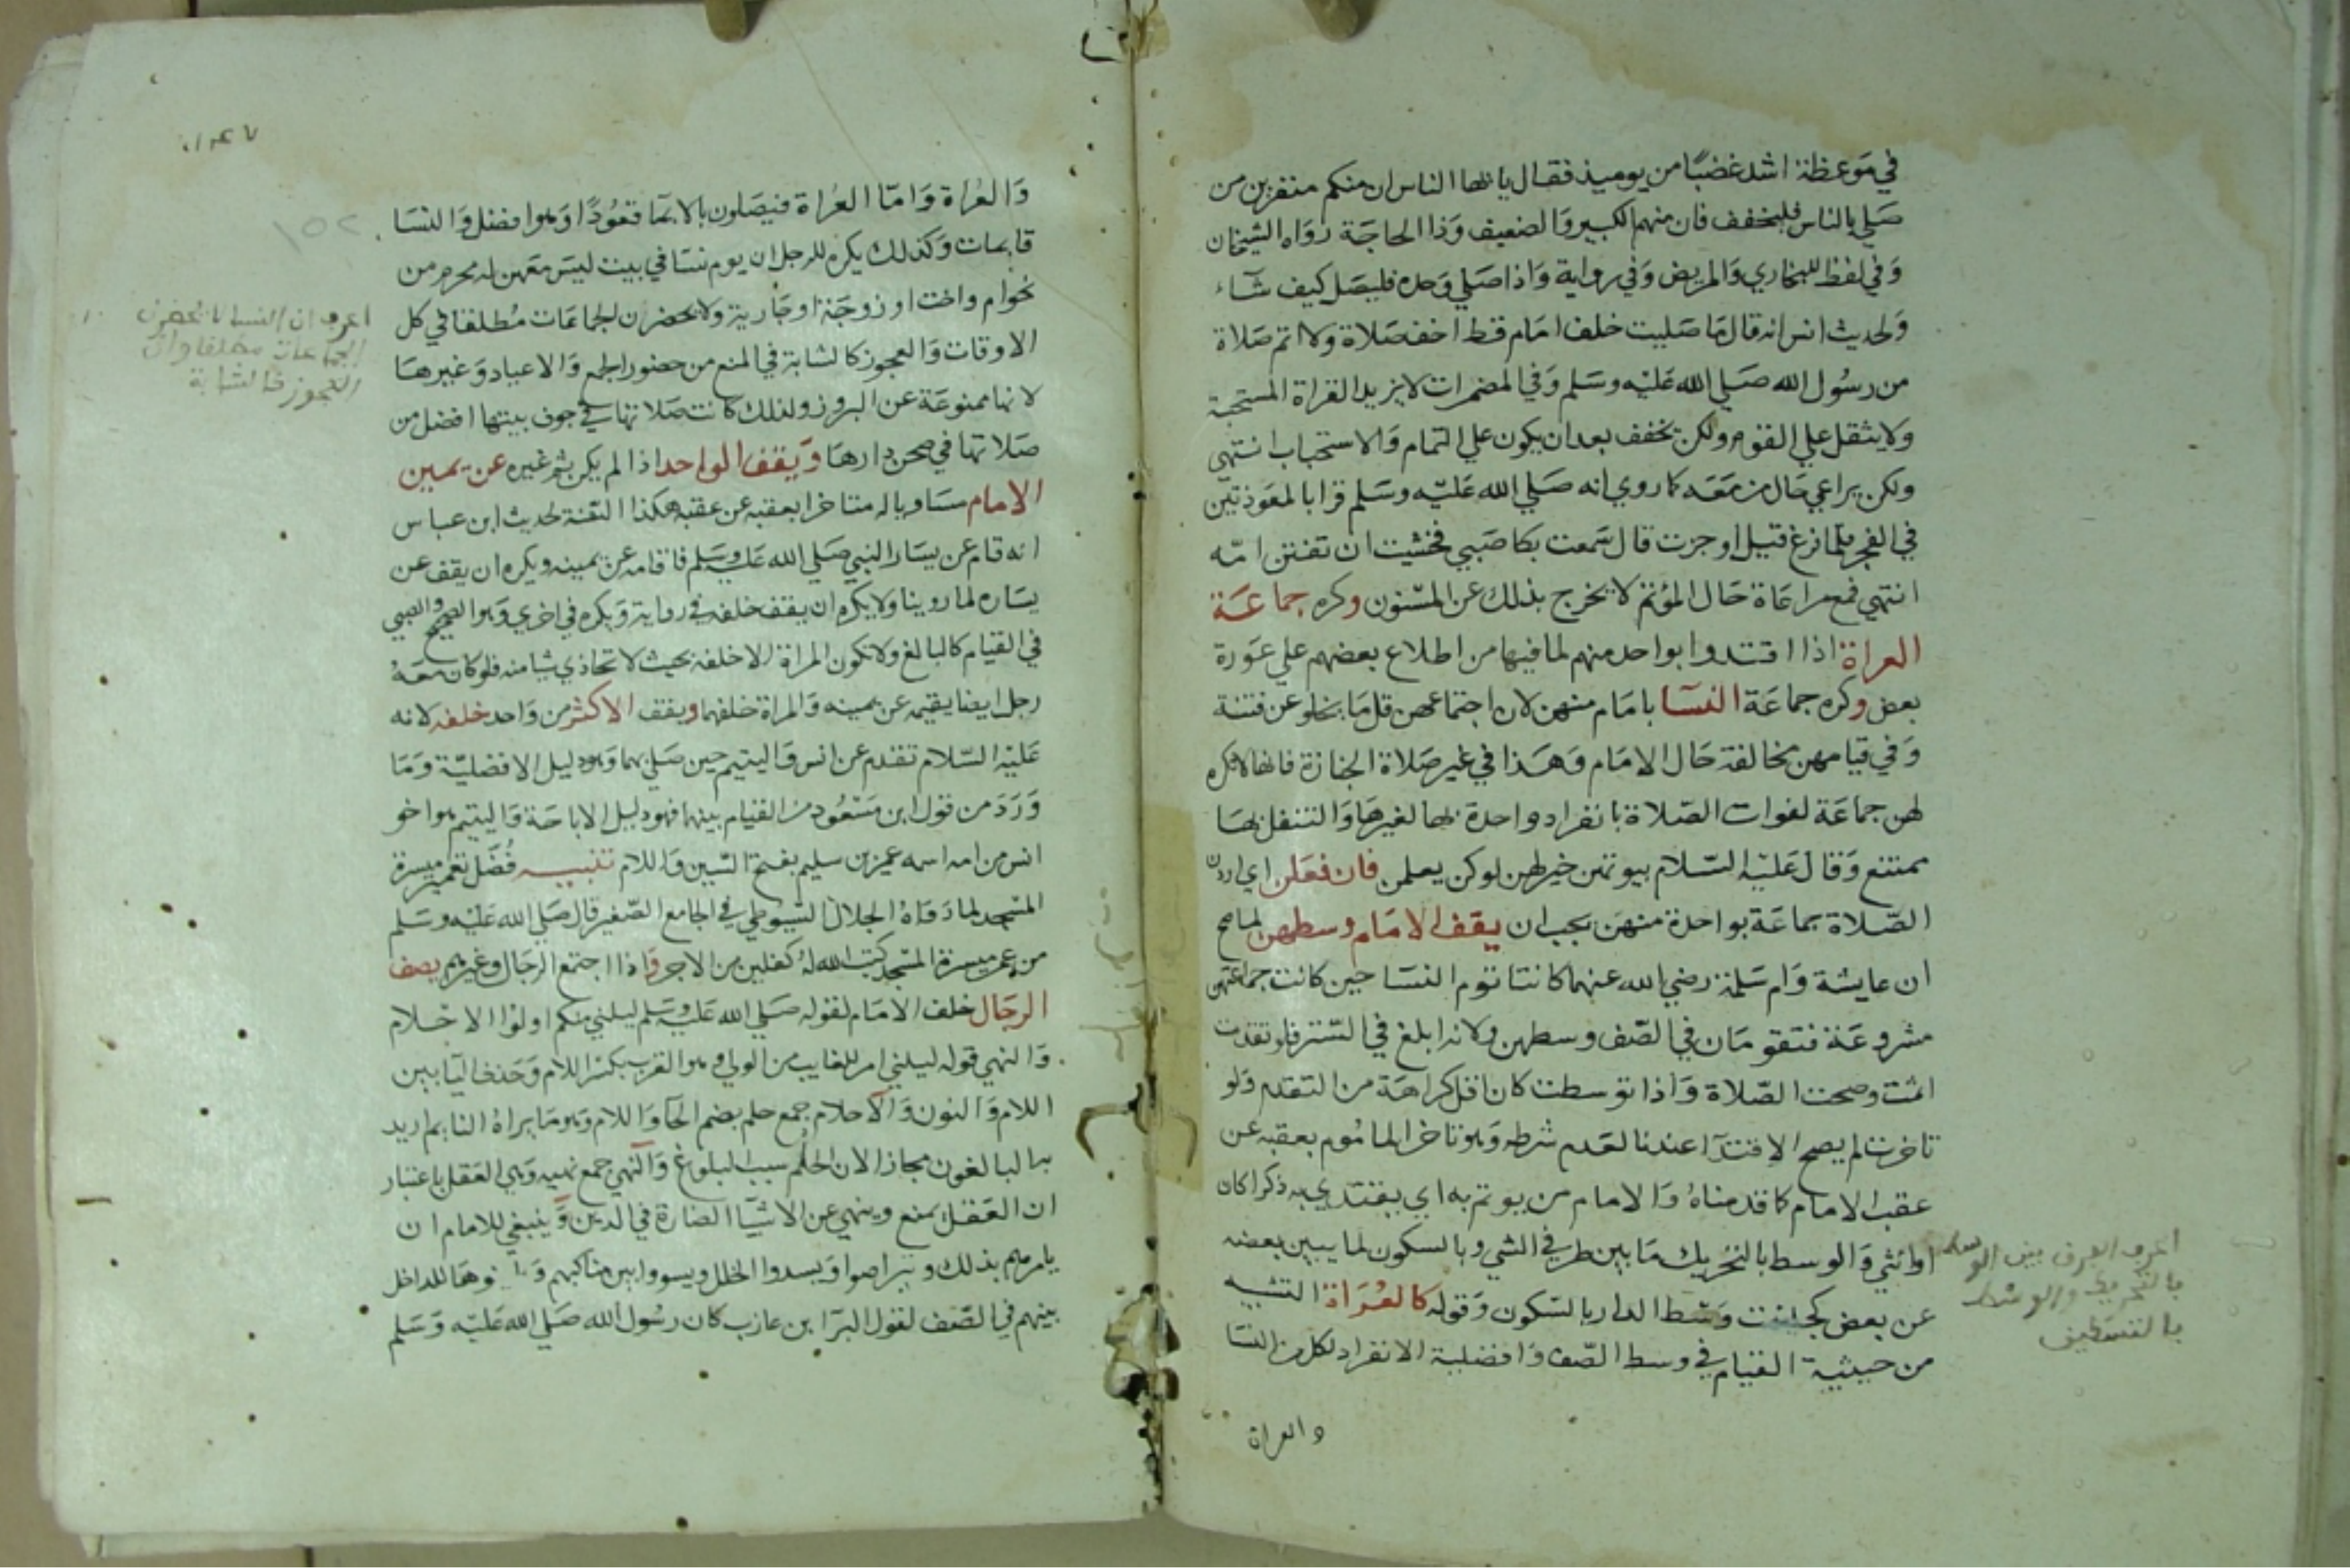 في موعظة اشد غضبًا من يوميذ فقال يا ايها الناس ان منكم منفرين من
صلي بالناس فليخفف فان منهم الكبير والضعيف وذا الحاجة رواه الشيخان
وفي لفظ للبخاري والمريض وفي رواية واذا صلي وحده فليصل كيف شآء
ولحديث انس انه قال ما صليت خلف امام قط اخف صلاة ولا اتم صلاة
من رسول الله صلي الله عليه وسلم وفي المضمرات لا يزيد القراة المستحبة
ولا يثقل علي القوم ولكن يخفف بعد ان يكون علي التمام والاستحباب انتهي
ولكن يراعي حال من معه كما روي انه صلي الله عليه وسلم قرا بالمعوذتين
في الفجر فلما فرغ قيل اوجزت قال سمعت بكا صبي فخشيت ان تفتتن امه
انتهي فمع مراعاة حال المؤتم لا يخرج بذلك عن المسنون وكره جماعة
العراة اذا اقتدوا بواحد منهم لما فيها من اطلاع بعضهم علي عورة
بعض وكره جماعة النسا بامام منهن لان اجتماعهن قل ما يخلو عن فتنة
وفي قيامهن مخالفة حال الامام وهذا في غير صلاة الجنازة فانها لا تكره
لهن جماعة لفوات الصلاة بانفراد واحدة بها لغيرها والتنفل بها
ممتنع وقال عليه السلام بيوتهن خير لهن لو كن يعلمن فان فعلن اي اردن
الصلاة جماعة بواحدة منهن يجب ان يقف الامام وسطهن لما صح
ان عايشة وام سلمة رضي الله عنهما كانتا تؤم النسا حين كانت جماعتهن
مشروعة فتقومان في الصف وسطهن ولانه ابلغ في الستر فلو تقدمت
اثمت وصحت الصلاة واذا توسطت كان اقل كراهة من التقدم ولو
تاخرت لم يصح الاقتدآ عندنا لعدم شرطه وهو تاخر الماموم بعقبه عن
عقب الامام كما قدمناه والامام من يوتم به اي يقتدي به ذكرا كان
او انثي والوسط بالتحريك ما بين طرفي الشي وبالسكون لما يبين بعضه
عن بعض كجلست وسط الدار بالسكون وقوله كالعراة التشبيه
من حيثية القيام في وسط الصف وافضلية الانفراد لكل من النسا
والعراة
اعرف الفرق بين الوسط
بالتحريك والوسط
بالتسكين
والعراة واما العراة فيصلون بالايما قعودًا وهو افضل والنسا
قايمات وكذلك يكره للرجل ان يوم نسا في بيت ليس معهن له محرم من
نحو ام واخت او زوجة او جارية ولا يحضرن الجماعات مطلقا في كل
الاوقات والعجوز كالشابة في المنع من حضور الجمع والاعياد وغيرها
لانها ممنوعة عن البروز ولذلك كانت صلاتها في جوف بيتها افضل من
صلاتها في صحن دارها ويقف الواحد اذا لم يكن ثم غيره عن يمين
الامام مساويا له متاخرا بعقبه عن عقبه هكذا السنة لحديث ابن عباس
انه قام عن يسار النبي صلي الله عليه وسلم فاقامه عن يمينه ويكره ان يقف عن
يساره لما روينا ولا يكره ان يقف خلفه في رواية ويكره في اخري وهو الصحيح والصبي
في القيام كالبالغ ولا تكون المراة الا خلفه بحيث لا تحاذي شيا منه فلو كان معه
رجل ايضا يقيمه عن يمينه والمراة خلفهما ويقف الاكثر من واحد خلفه لانه
عليه السلام تقدم عن انس واليتيم حين صلي بهما وهو دليل الافضلية وما
ورد من قول ابن مسعود من القيام بينهما فهو دليل الاباحة واليتيم هو اخو
انس من امه اسمه عمير بن سليم بفتح السين واللام تنبيه فضل تعمير ميسرة
المسجد لما رواه الجلال السيوطي في الجامع الصغير قال صلي الله عليه وسلم
من عمر ميسرة المسجد كتب الله له كفلين من الاجر واذا اجتمع الرجال وغيرهم يصف
الرجال خلف الامام لقوله صلي الله عليه وسلم ليلني منكم اولوا الاحلام
والنهي قوله ليلني امر للغايب من الولي وهو القرب بكسر اللام وحذف اليا بين
اللام والنون والاحلام جمع حلم بضم الحا واللام وهو ما يراه النايم اريد
به البالغون مجازا لان الحلم سبب البلوغ والنهي جمع نهيه وهي العقل باعتبار
ان العقل يمنع وينهي عن الاشيا الضارة في الدين وينبغي للامام ان
يامرهم بذلك وتراصوا ويسدوا الخلل ويسووا بين مناكبهم للداخل
بينهم في الصف لقول البرا بن عازب كان رسول الله صلي الله عليه وسلم
اعرف ان النسا لا يحضرن
الجماعات مطلقا وان
العجوز كالشابة
١٥٢